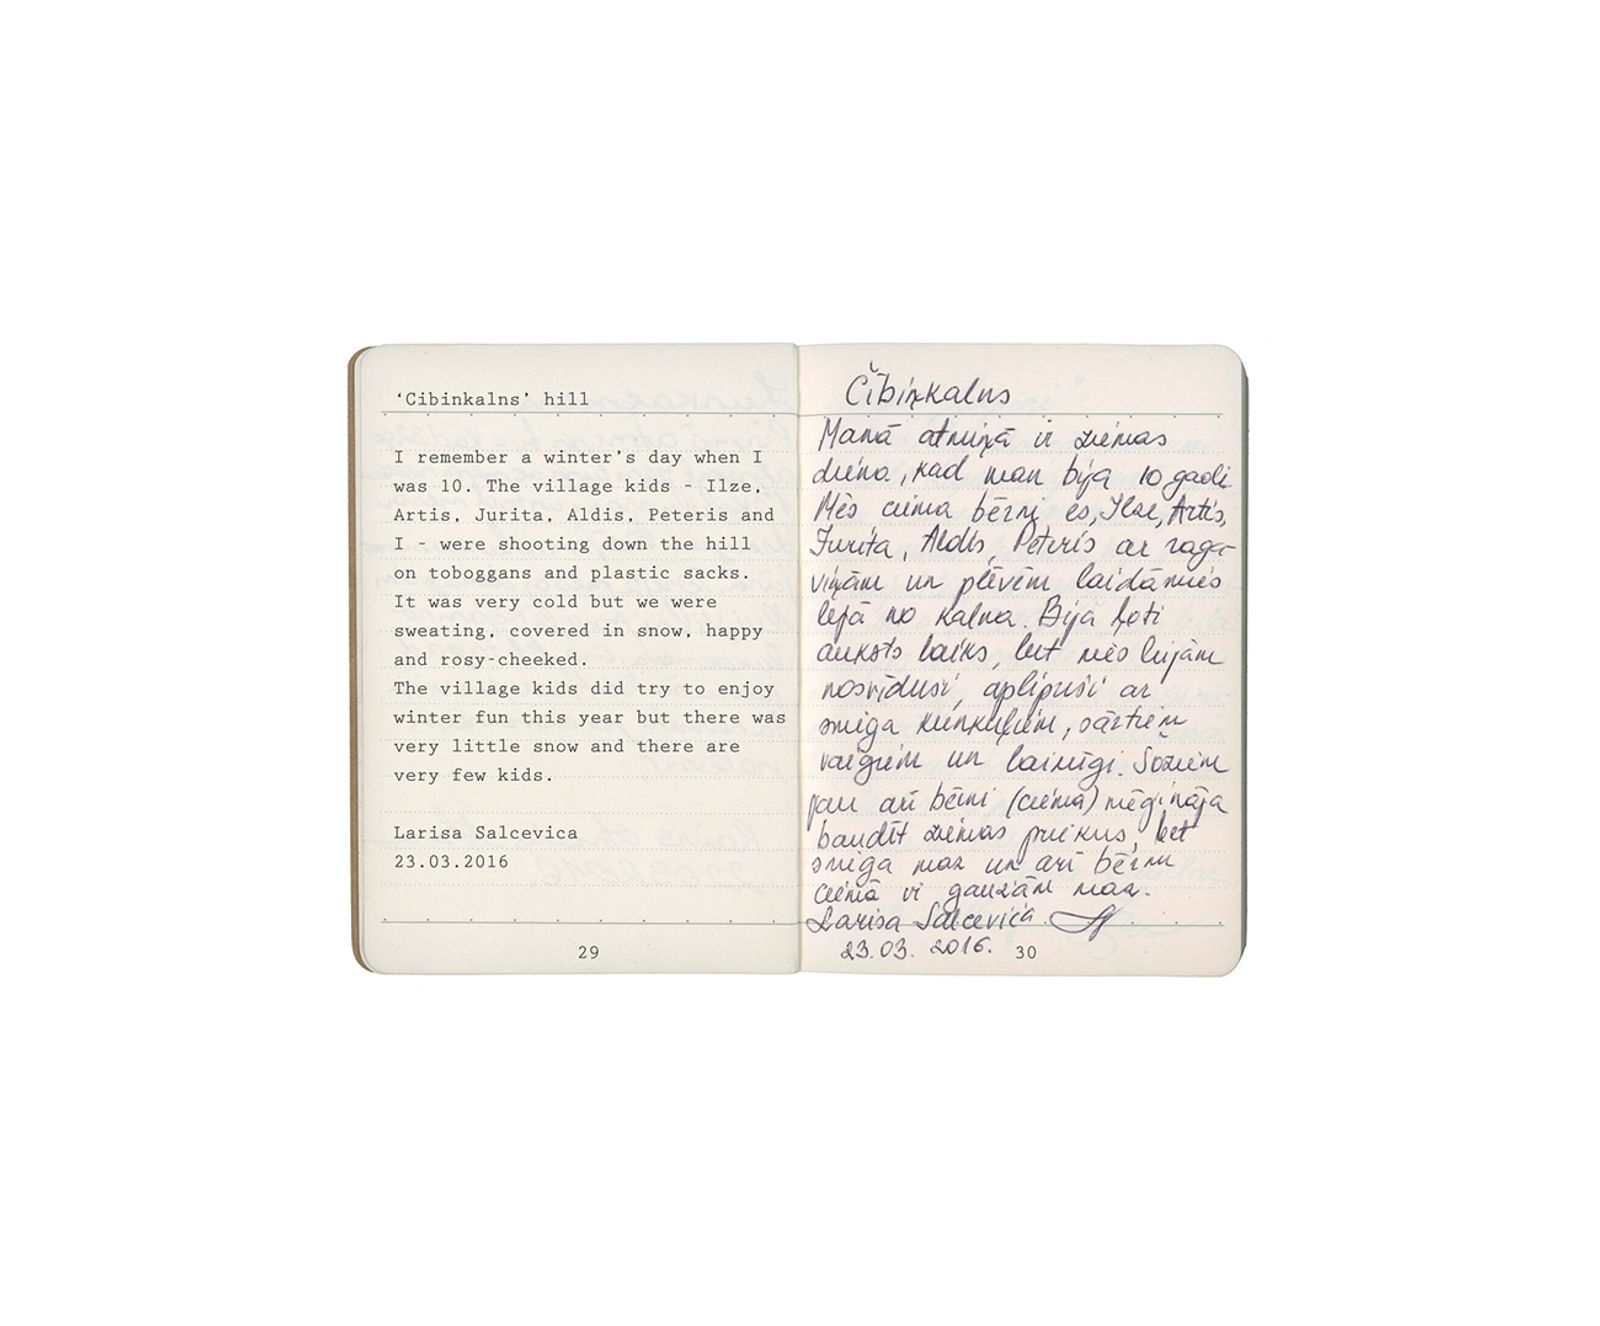 ‘Cibinkalns’ hill
I remember a winter’s day when I
was 10. The village kids - Ilze,
Artis, Jurita, Aldis, Peteris and
I - were shooting down the hill
on toboggans and plastic sacks.
It was very cold but we were
sweating, covered in snow, happy
and rosy-cheeked.
The village kids did try to enjoy
winter fun this year but there was
very little snow and there are
very few kids.
Larisa Salcevica
23.03.2016
29
Čībiņkalns
Manā atmiņā ir ziemas
diena, kad man bija 10 gadi
Mēs ciema bērni es, Ilze, Artis,
Jurita, Aldis, Pēteris ar raga
viņām un plēvēm laidāmies
lejā no kalna. Bija ļoti
auksts laiks, bet mēs bijām
nosvīduši, aplipuši ar
sniega kunkuļiem, sārtiem
vaigiem un laimīgi. Šoziem
jau arī bērni (ciemā) mēģināja
baudīt ziemas priekus, bet
sniega maz un arī bērnu
ciemā ir gaužām maz.
Larisa Salceviča
23.03. 2016.
30